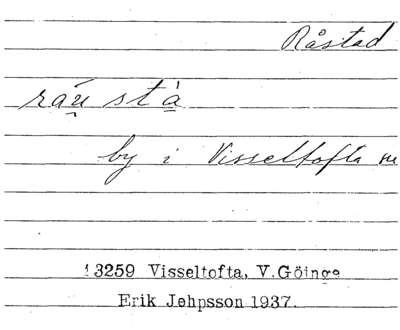 Råstad
ráu̯ stà̱
by i Visseltofta sn
13259 Visseltofta, V.Göinge
Erik Jehpsson 1937.